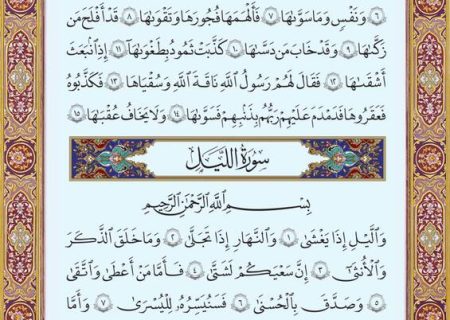 ٦ وَنَفْسٍ وَمَا سَوَّىٰهَا ٧ فَأَلْهَمَهَا فُجُورَهَا وَتَقْوَىٰهَا ٨ قَدْ أَفْلَحَ مَن
زَكَّىٰهَا ٩ وَقَدْ خَابَ مَن دَسَّىٰهَا ١٠ كَذَّبَتْ ثَمُودُ بِطَغْوَىٰهَا ١١ إِذِ ٱنۢبَعَثَ
أَشْقَىٰهَا ١٢ فَقَالَ لَهُمْ رَسُولُ ٱللَّهِ نَاقَةَ ٱللَّهِ وَسُقْيَٰهَا ١٣ فَكَذَّبُوهُ
فَعَقَرُوهَا فَدَمْدَمَ عَلَيْهِمْ رَبُّهُم بِذَنۢبِهِمْ فَسَوَّىٰهَا ١٤ وَلَا يَخَافُ عُقْبَٰهَا ١٥
سُورَةُ اللَّيْلِ
بِسْمِ ٱللَّهِ ٱلرَّحْمَٰنِ ٱلرَّحِيمِ
وَٱلَّيْلِ إِذَا يَغْشَىٰ ١ وَٱلنَّهَارِ إِذَا تَجَلَّىٰ ٢ وَمَا خَلَقَ ٱلذَّكَرَ
وَٱلْأُنثَىٰٓ ٣ إِنَّ سَعْيَكُمْ لَشَتَّىٰ ٤ فَأَمَّا مَنْ أَعْطَىٰ وَٱتَّقَىٰ
٥ وَصَدَّقَ بِٱلْحُسْنَىٰ ٦ فَسَنُيَسِّرُهُۥ لِلْيُسْرَىٰ ٧ وَأَمَّا